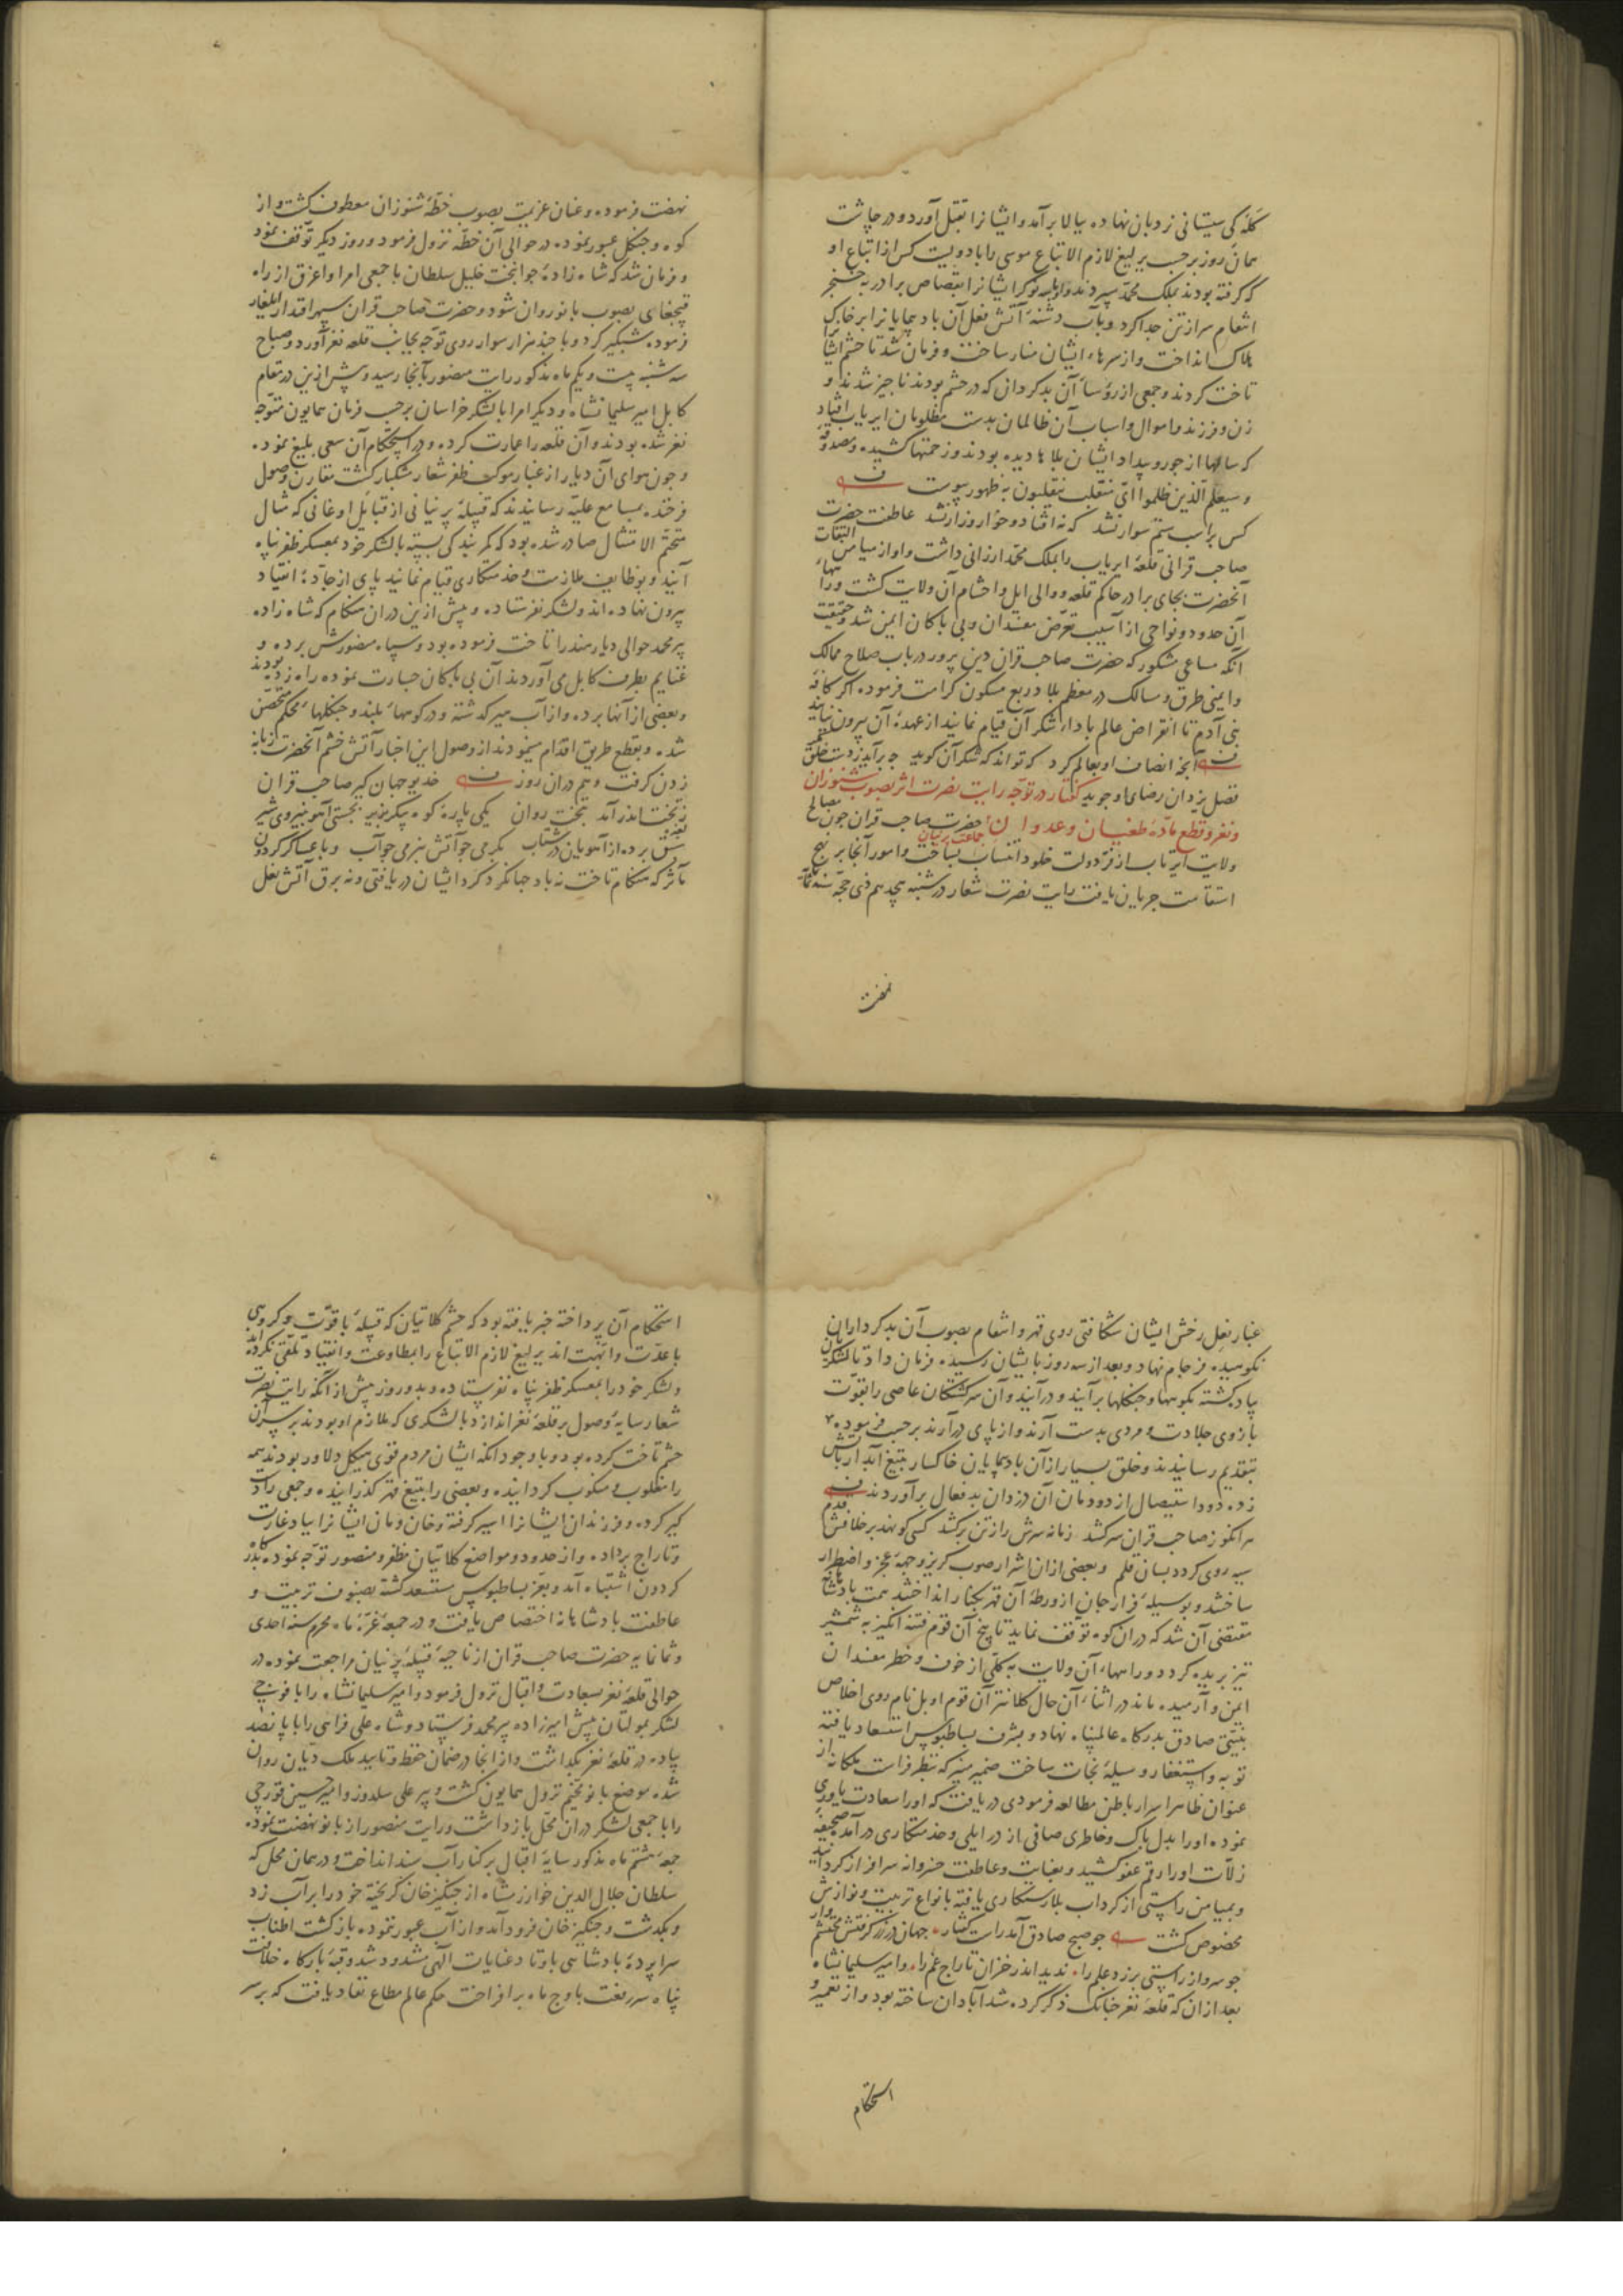 کله کی سیستانی نردبان نهاده ببالا برآمد و ایشانرا بقتل آورد و در چاشت
همان روز بر حسب یرلیغ لازم الاتباع موسی را با دویست کس از اتباع او
که گرفته بودند بملک محمد سپردند و او بیه نوکر ایشانرا بقصاص برادر به خنجر
انتقام سر از تن جدا کرد و بآب دشنه آتش فعل آن بادپیمایانرا بر خاک
هلاک انداخت و از سرهاء ایشان منار ساخت و فرمان شد تا حشم ایشانرا
تاخت کردند و جمعی از رؤساء آن بدکرداران که در حشم بودند ناچیز شدند و
زن و فرزند و اموال و اسباب آن ظالمان بدست مظلومان ایریاب افتاد
که سالها از جور و بیداد ایشان بلاها دیده بودند و زحمتها کشیده و مصدوقه
و سیعلم الذین ظلموا ای منقلب ینقلبون به ظهور پیوست
کس بر اسب ستم سوار نشد که نه افتاد و خوار و زار نشد عاطفت حضرت
صاحب قرانی قلعه ایریاب را بملک محمد ارزانی داشت و او از میامن التفات
آنحضرت بجای برادر حاکم قلعه و والی ایل و احشام آن ولایت گشت و راههاء
آن حدود و نواحی از آسیب تعرض مفسدان و بی باکان ایمن شد و حقیقت
آنکه مساعی مشکور که حضرت صاحب قران دین پرور در باب صلاح ممالک
و ایمنی طرق و مسالک در معظم بلاد ربع مسکون کرامت فرموده اگر کافه
بنی آدم تا انقراض عالم باداء شکر آن قیام نمایند از عهده آن بیرون نیایند
آنچه انصاف او بعالم کرد که تواند که شکر آن گوید چه برآید ز دست خلق مگر
فضل یزدان رضای او جوید گفتار در توجه رایت نصرت اثر بصوب شنوزان
و نغر و قطع ماده طغیان و عدوان جماعت پرنیان حضرت صاحب قران چون مصالح
ولایت ایریاب از فر دولت خلود انتساب بساخت و امور آنجا بر نهج
استقامت جریان یافت رایت نصرت شعار در شنبه هجدهم ذی حجه سنه ثمانمایه
نهضت
نهضت فرموده و عنان عزیمت بصوب خطه شنوزان معطوف گشت و از
کوه و جنگل عبور نموده در حوالی آن خطه نزول فرمود و روز دیگر توقف نمود
و فرمان شد که شاه زاده جوانبخت خلیل سلطان با جمعی امرا و اغرق از راه
قبچغای بصوب بانو روان شود و حضرت صاحب قران سپهر اقتدار ایلغار
فرموده شبگیر کرد و با چند هزار سوار روی توجه بجانب قلعه نغر آورد و صباح
سه شنبه بیست و یکم ماه مذکور رایت منصور بآنجا رسید و پیش ازین در مقام
کابل امیر سلیمانشاه و دیگر امرا با لشکر خراسان بر حسب فرمان همایون متوجه
نغر شده بودند و آن قلعه را عمارت کرده و در استحکام آن سعی بلیغ نموده
و چون هوای آن دیار از غبار موکب ظفر شعار مشکبار گشت مقارن وصول
فرخنده بمسامع علیه رسانیدند که قبیله پرنیانی از قبایل اوغانی که مثال
متحتم الامتثال صادر شده بود که کمر بندگی بسته با لشکر خود بمعسکر ظفر پناه
آیند و بوظایف ملازمت و خدمتکاری قیام نمایند پای از جاده انقیاد
بیرون نهاده اند و لشکر نفرستاده و پیش ازین دران هنگام که شاه زاده
پیر محمد حوالی دیار هند را تاخت فرموده بود و سپاه منصورش برده و
غنایم بطرف کابل می آوردند آن بی باکان جسارت نموده راه زده بودند
و بعضی از آنها برده و از آب میر گذشته و در کوههاء بلند و جنگلهاء محکم متحصن
شده و بقطع طریق اقدام مینمودند از وصول این اخبار آتش خشم آنحضرت زبانه
زدن گرفت و هم دران روز خدیو جهان گیر صاحب قران
ز تخت اندر آمد بتخت روان یکی باره کوه پیکر بزیر بجستی آهو بنیروی شیر
سبق برده از آهوان در شتاب بگرمی چو آتش بنرمی چو آب و با عساکر گردون
مآثر که هنگام تاخت نه باد جهانگرد گرد ایشان دریافتی و نه برق آتش نعل
غبار نعل رخش ایشان شکافتی روی قهر و انتقام بصوب آن بدکرداران
نکوهیده فرجام نهاد و بعد از سه روز بایشان رسیده فرمان داد تا لشکریان
پیاده گشته بکوهها و جنگلها برآیند و درآیند و آن سرگشتگان عاصی را بقوت
بازوی جلادت و مردی بدست آرند و از پای درآرند بر حسب فرموده
بتقدیم رسانیدند و خلق بسیار ازان بادپیمایان خاکسار بتیغ آبدار آتش
زده دود استیصال از دودمان آن دزدان بدفعال برآوردند
هر آنکو ز صاحب قران سر کشد زمانه سرش را ز تن برکشد کسی کو نهد بر خلافش قدم
سیه روی گردد بسان قلم و بعضی ازان اشرار صوب گریز وجهه عجز و اضطرار
ساختند و بوسیله فرار جان از ورطه آن قهر بکنار انداختند همت پادشاهانه
مقتضی آن شد که دران کوه توقف نماید تا بیخ آن قوم فتنه انگیز به شمشیر
تیز بریده گردد و راهها، آن ولایت به کلی از خوف و خطر مفسدان
ایمن و آرمیده ماند در اثناء آن حال کلانتر آن قوم اوبل نام روی اخلاص
بنیتی صادق بدرگاه عالمپناه نهاد و بشرف بساطبوس استسعاد یافته
توبه و استغفار وسیله نجات ساخت ضمیر منیر که بنظر فراست ملکانه از
عنوان ظاهر اسرار باطن مطالعه فرمودی دریافت که او را سعادت یاوری
نموده او را بدل پاک و خاطری صافی از در ایلی و خدمتکاری درآمد صحیفه
زلات او را رقم عفو کشید و بعنایت و عاطفت خسروانه سرافراز گردانید
و بمیامن راستی از گرداب بلا رستگاری یافته بانواع تربیت و نوازش
مخصوص گشت چو صبح صادق آمد راست گفتار جهان در زر گرفتش محتشم وار
چو سرو از راستی برزد علم را ندید اندر خزان تاراج غم را و امیر سلیمانشاه
بعد ازان که قلعه نغر چنانک ذکر کرده شد آبادان ساخته بود و از تعمیر و
استحکام
استحکام آن پرداخته خبر یافته بود که حشم کلاتیان که قبیله باقوت و گروهی
با عدت و ابهت اند یرلیغ لازم الاتباع را بمطاوعت و انقیاد تلقی نکرده اند
و لشکر خود را بمعسکر ظفر پناه نفرستاده و بدو روز پیش از آنکه رایت نصرت
شعار سایه وصول بر قلعه نغر اندازد با لشکری که ملازم او بودند بر سر آن
حشم تاخت کرده بود و با وجود آنکه ایشان مردم قوی هیکل دلاور بودند همه
را مغلوب و منکوب گردانیده و بعضی را بتیغ قهر گذرانیده و جمعی را دست
گیر کرده و فرزندان ایشانرا اسیر گرفته و خان و مان ایشانرا بباد غارت
و تاراج برداده و از حدود و مواضع کلاتیان مظفر و منصور توجه نموده بدرگاه
گردون اشتباه آمد و بعز بساطبوس مستسعد گشته بصنوف تربیت و
عاطفت پادشاهانه اختصاص یافت و در جمعه غره ماه محرم سنه احدی
و ثمانمایه حضرت صاحب قران از ناحیه قبیله پرنیان مراجعت نموده در
حوالی قلعه نغر بسعادت و اقبال نزول فرمود و امیر سلیمانشاه را با فوجی
لشکر بمولتان پیش امیرزاده پیر محمد فرستاد و شاه علی فراهی را با پانصد
پیاده در قلعه نغر بگذاشت و از آنجا در ضمان حفظ و تایید ملک دیان روان
شده موضع بانو مخیم نزول همایون گشت و پیر علی سلدوز و امیر حسین قورچی
را با جمعی لشکر دران محل بازداشت و رایت منصور از بانو نهضت نموده
جمعه هشتم ماه مذکور سایه اقبال بر کنار آب سند انداخت و در همان محل که
سلطان جلال الدین خوارزمشاه از چنگیز خان گریخته خود را بر آب زد
و بگذشت و چنگیز خان فرود آمد و از آب عبور نموده بازگشت اطناب
سراپرده پادشاهی باوتاد عنایات الهی مشدود شد و قبه بارگاه خلافت
پناه سر رفعت باوج ماه برافراخت حکم عالم مطاع نفاذ یافت که بر سر